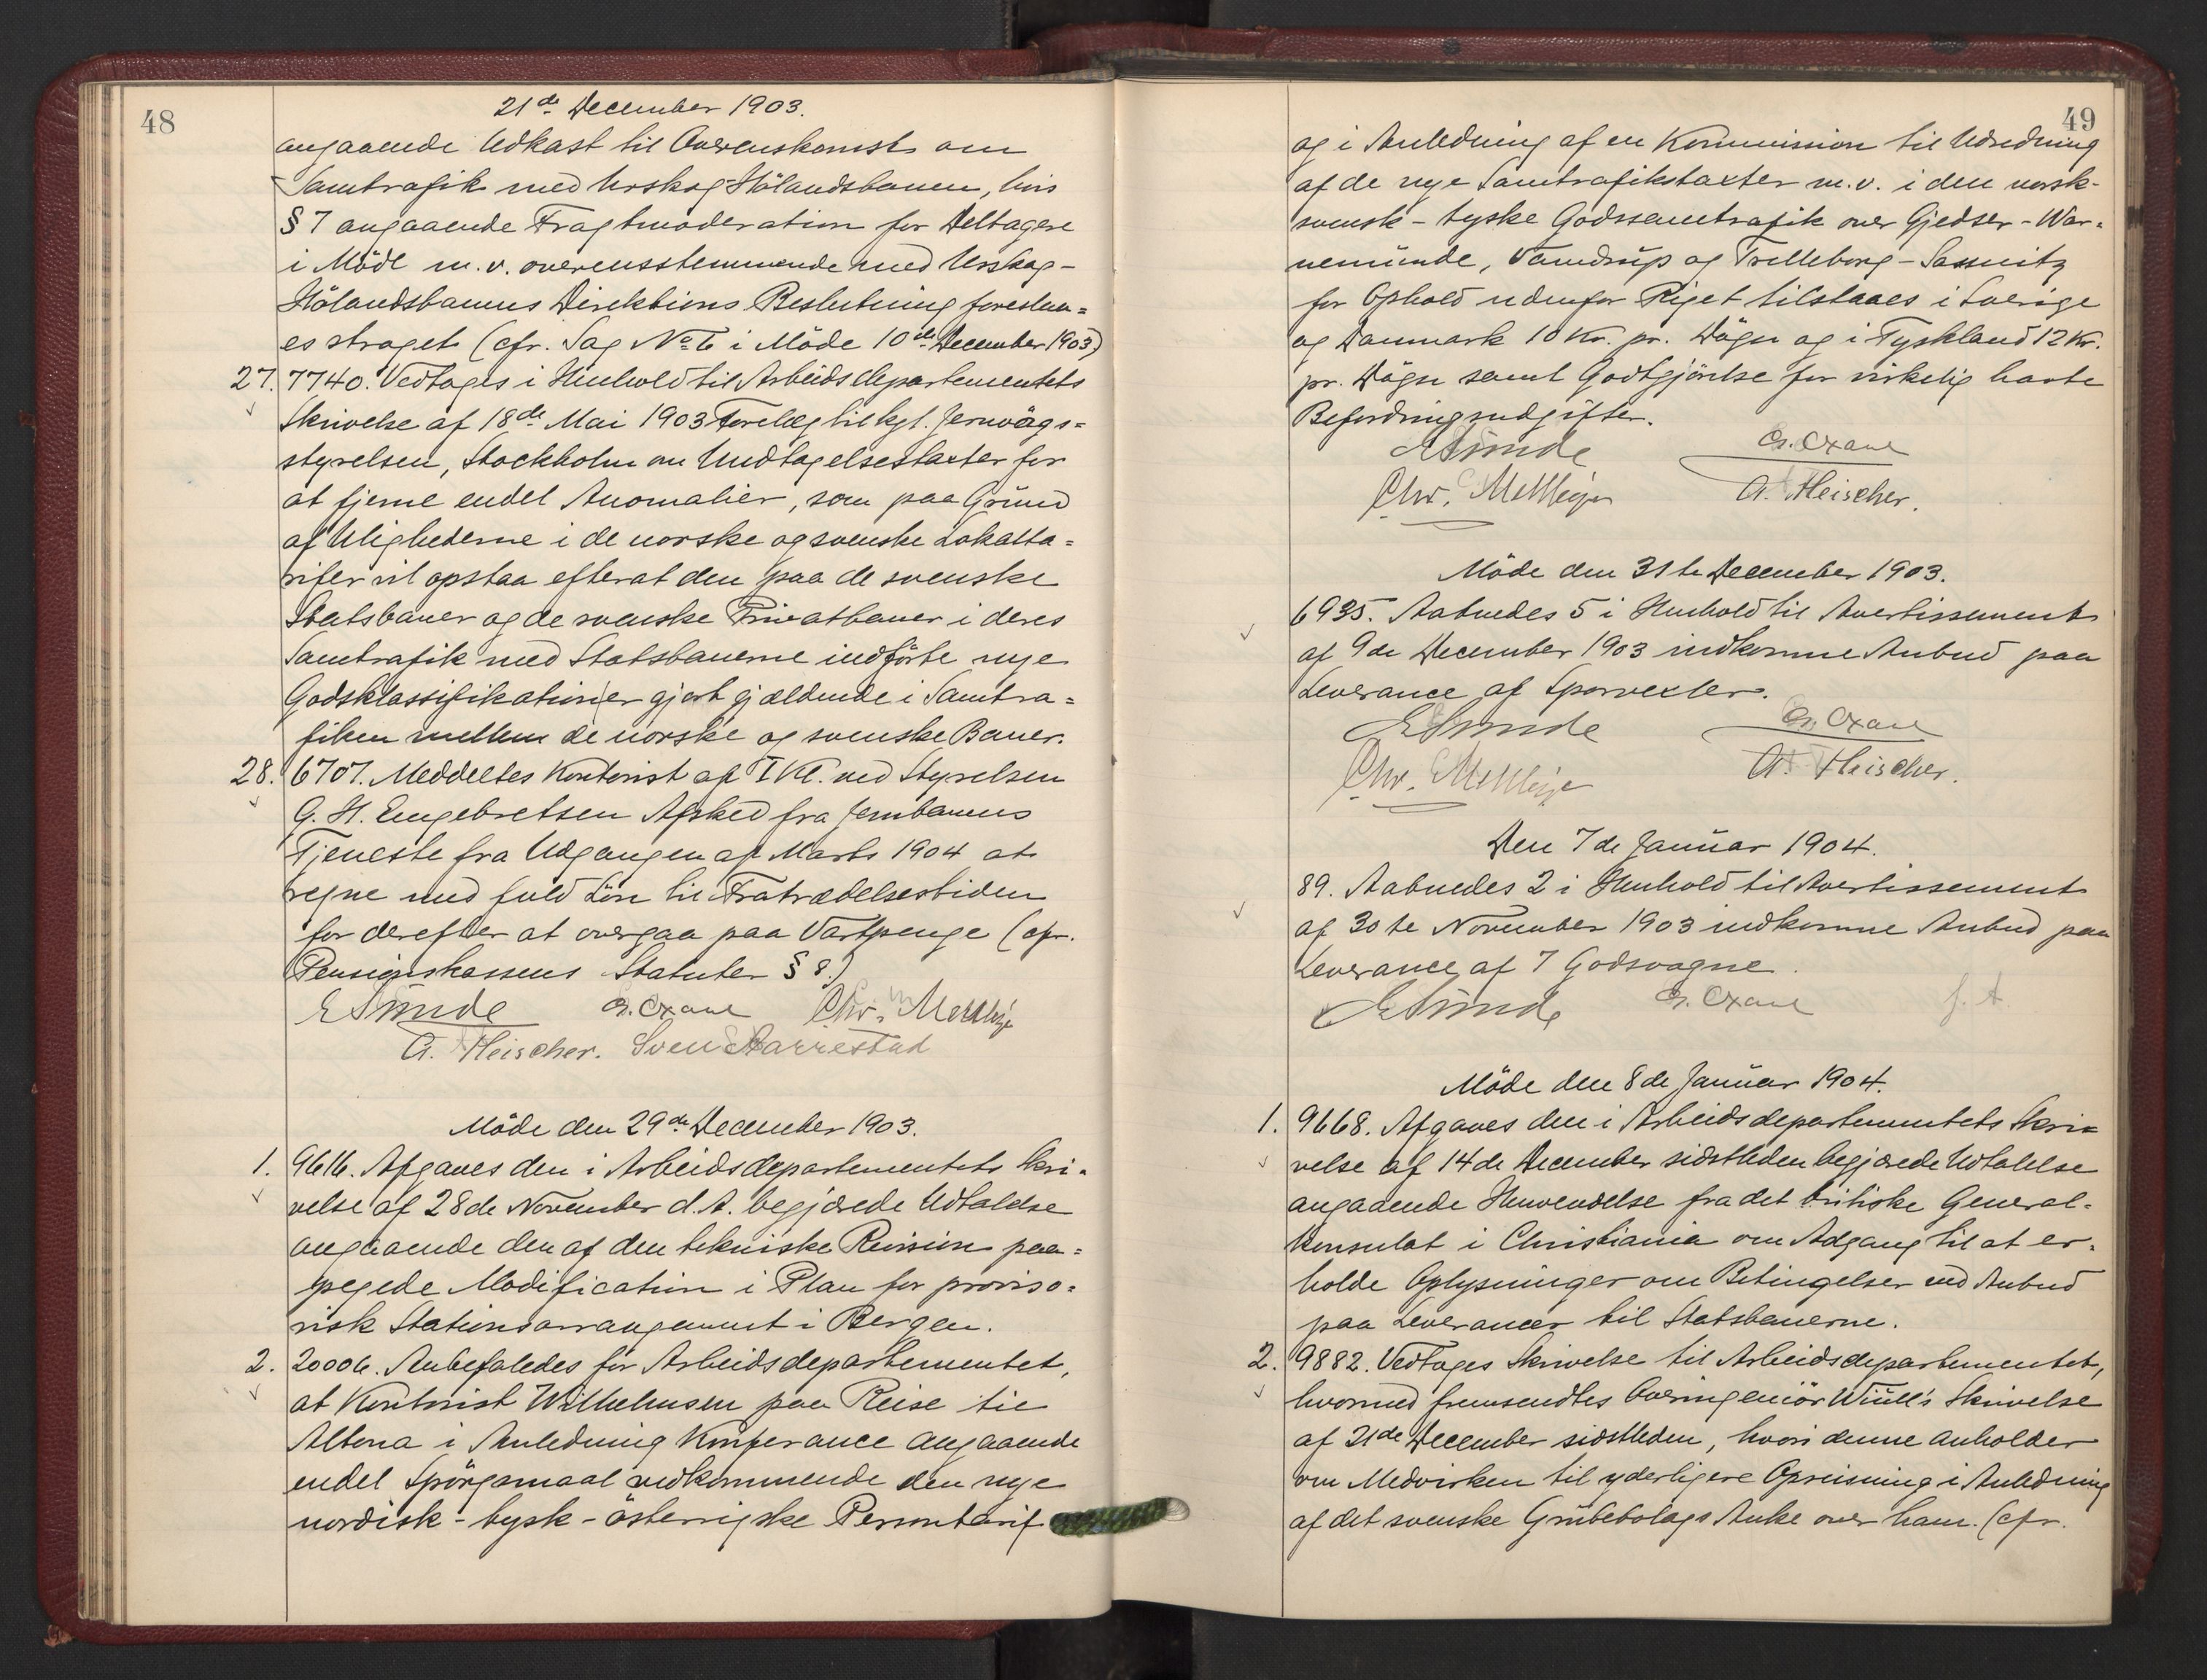 48
21de December 1903.
angaaende Udkast til Overenskomst om
Samtrafik med Urskog-Hölandsbanen, hvis
§ 7 angaaende Fragtmoderation for Deltagere
i Möde m. v. overensstemmende med Urskog-
Hölandsbanens Direktions Beslutning foreslaa-
es strøget (cfr. Sag No 6 i Möde 10de December 1903)
27. 7740. Vedtoges i Henhold til Arbeidsdepartementets
Skrivelse af 18de Mai 1903 Forelæg til kgl. Jernvägs-
styrelsen, Stockholm om Undtagelsestaxter for
at fjerne endel Anomalier, som paa Grund
af Ulighederne i de norske og svenske Lokalta-
rifer vil opstaa efterat den paa de svenske
Statsbaner og de svenske Privatbaner i deres
Samtrafik med Statsbanerne indförte nye
Godsklassifikation er gjort gjældende i Samtra-
fiken mellem de norske og svenske Baner.
28. 6707. Meddeltes Kontorist af I Kl. ved Styrelsen
G. H. Engebretsen Afsked fra Jernbanens
Tjeneste fra Udgangen af Marts 1904 at
regne med fuld Lön til Fratrædelsestiden
for derefter at overgaa paa Vartpenge (cfr.
Pensionskassens Statuter § 8.)
E Sunde G. Oxaal Chr. Mellbye
A. Fleischer. Sven Aarrestad
Möde den 29de December 1903.
1. 9616. Afgaves den i Arbeidsdepartementets Skri-
velse af 28de November d. A. begjærede Udtalelse
angaaende den af den tekniske Revision paa-
pegede Modification i Plan for proviso-
risk Stationsarrangement i Bergen.
2. 20006. Anbefaledes for Arbeidsdepartementet,
at Kontorist Wilhelmsen paa Reise til
Altona i Anledning Konferance angaaende
endel Spörgsmaal vedkommende den nye
nordisk-tysk-österrigske Persontarif
49
og i Anledning af en Kommission til Udredning
af de nye Samtrafikstaxter m. v. i den norsk-
svensk-tyske Godssamtrafik over Gjedser-War-
nemünde, Vamdrup og Trelleborg-Sassnitz
for Ophold udenfor Riget tilstaaes i Sverige
og Danmark 10 Kr. pr. Dögn og i Tyskland 12 Kr.
pr. Dögn samt Godtgjörelse for virkelig havte
Befordringsudgifter.
E Sunde G. Oxaal
Chr. Mellbye A. Fleischer.
Möde den 31te December 1903.
6935. Aabnedes 5 i Henhold til Avertissement
af 9de December 1903 indkomne Anbud paa
Leverance af Sporvexler.
E Sunde G. Oxaal
Chr. Mellbye A. Fleischer.
Den 7de Januar 1904.
89. Aabnedes 2 i Henhold til Avertissement
af 30te November 1903 indkomne Anbud paa
Leverance af 7 Godsvogne.
E Sunde G. Oxaal
Möde den 8de Januar 1904.
1. 9668. Afgaves den i Arbeidsdepartementets Skri-
velse af 14de December sidstleden begjærede Udtalelse
angaaende Henvendelse fra det britiske General-
konsulat i Christiania om Adgang til at er-
holde Oplysninger om Betingelser ved Anbud
paa Leverancer til Statsbanerne.
2. 9882. Vedtoges Skrivelse til Arbeidsdepartementet,
hvormed fremsendtes Overingeniör Wiull's Skrivelse
af 21de December sidstleden, hvori denne anholder
om Medvirken til yderligere Opreisning i Anledning
af det svenske Grubebolags Anke over ham. (cfr.